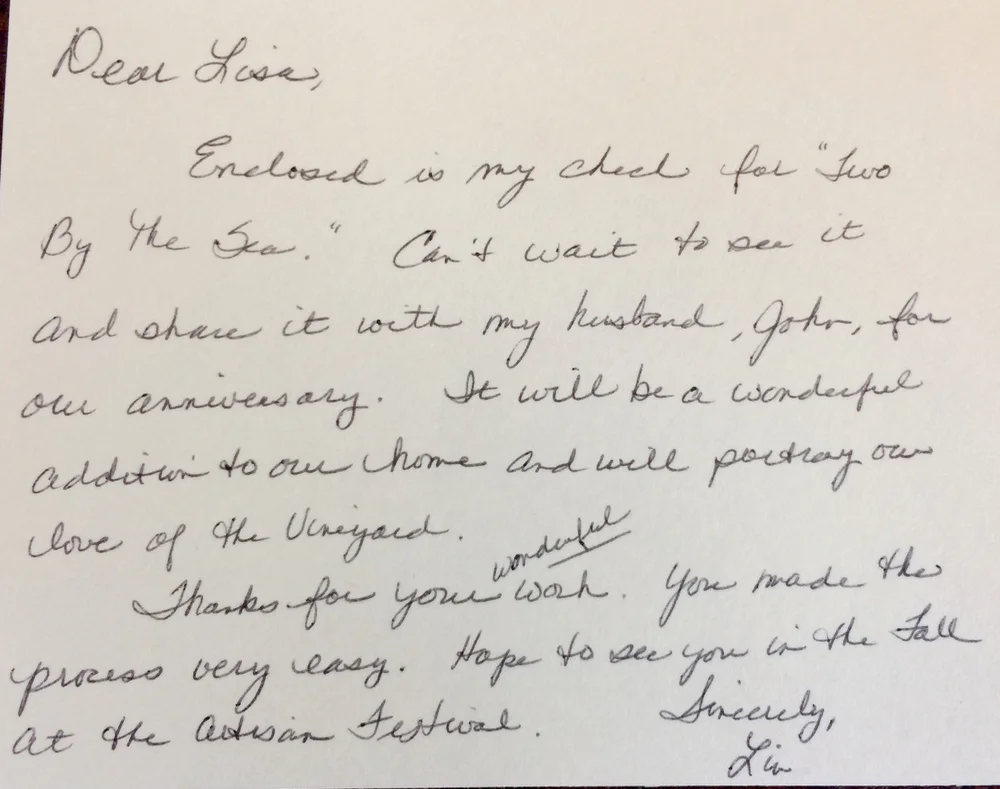 Dear Lisa,
Enclosed is my check for "Two
By The Sea." Can't wait to see it
and share it with my husband, John, for
our anniversary. It will be a wonderful
addition to our home and will portray our
love of the Vineyard.
Thanks for your wonderful work. You made the
process very easy. Hope to see you in the Fall
at the Artisan Festival. Sincerely,